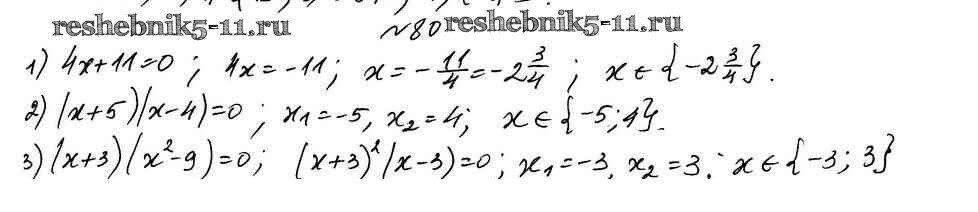 reshebnik5-11.ru №80 reshebnik5-11.ru
1) 4x+11=0 ; 4x=-11; x=-11/4=-2 3/4 ; x∈{-2 3/4}.
2) (x+5)(x-4)=0 ; x₁=-5, x₂=4; x∈{-5;4}.
3) (x+3)(x²-9)=0; (x+3)²(x-3)=0; x₁=-3, x₂=3; x∈{-3; 3}